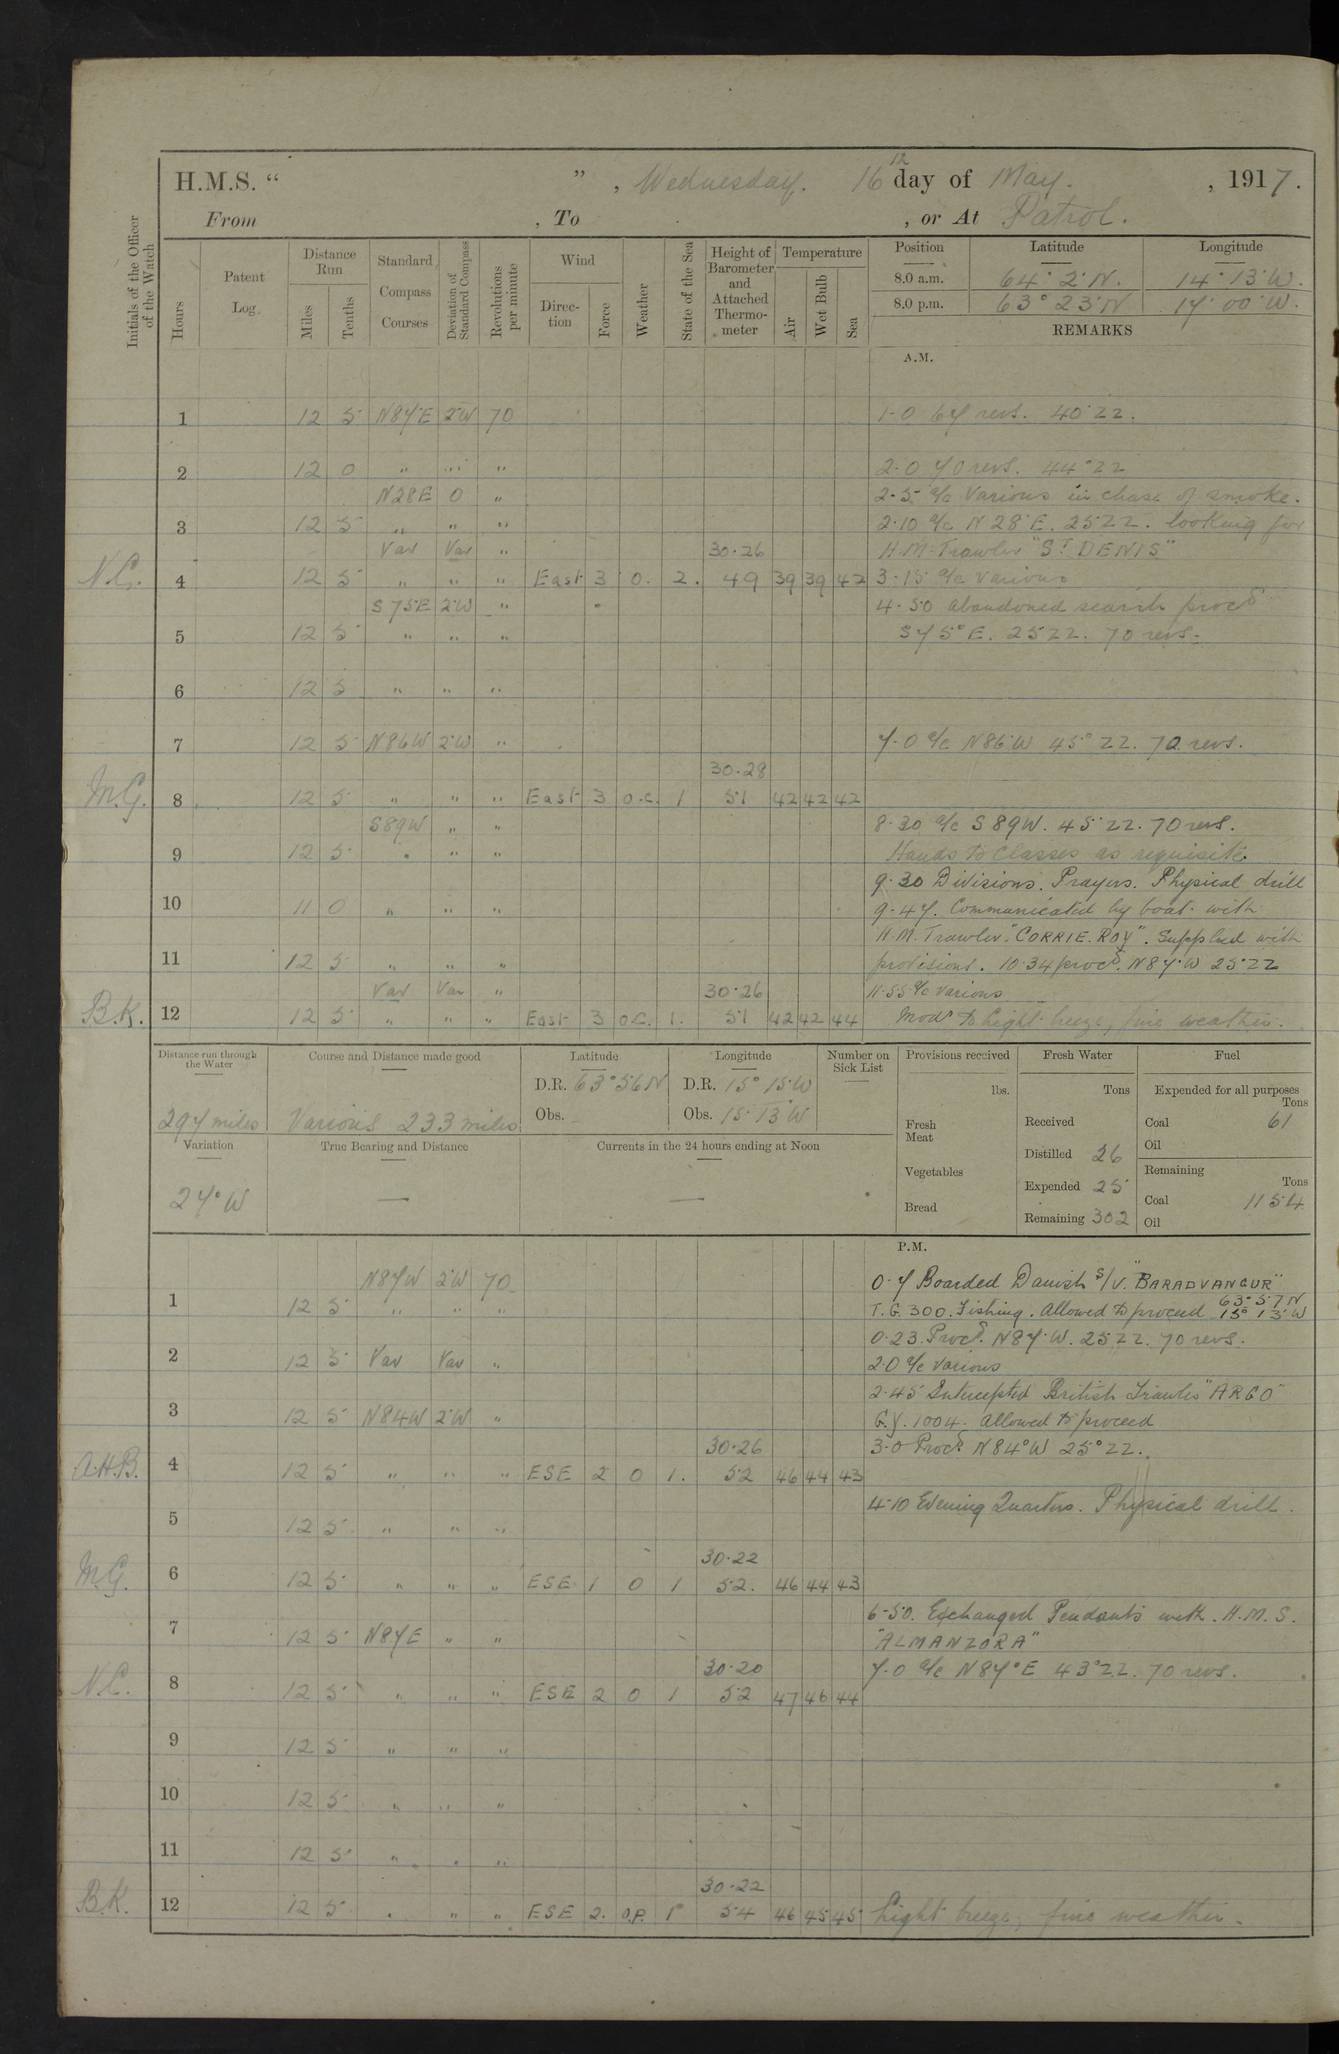 H.M.S. “ ” , Wednesday. 16th day of May. , 1917.
From , To , or At Patrol.
Initials of the Officer of the Watch
Hours
Patent Log.
Distance Run
Miles
Tenths
Standard Compass Courses
Deviation of Standard Compass
Revolutions per minute
Wind
Direction
Force
Weather
State of the Sea
Height of Barometer and Attached Thermometer
Temperature
Air
Wet Bulb
Sea
Position Latitude Longitude
8.0 a.m. 64° 2' N. 14° 13' W.
8.0 p.m. 63° 23' N 17° 00' W.
REMARKS
A.M.
1 12 5 N87E 2°W 70 1-0 67 revs. 40°ZZ.
2 12 0 " " " 2-0 70 revs. 44°ZZ
N28E 0 " 2-5 a/c Various in chase of smoke.
3 12 5 " " " 2.10 a/c N 28°E. 25ZZ. looking for
Var Var " 30.26 H.M. Trawler "ST DENIS"
N.C. 4 12 5 " " " East 3 O. 2. 49 39 39 42 3-15 a/c various
S 75E 2°W " 4.50 abandoned search procd
5 12 5 " " " S 75°E. 25ZZ. 70 revs.
6 12 5 " " "
7 12 5 N86W 2°W " 7.0 a/c N86°W 45°ZZ. 70 revs.
30.28
M.G. 8 12 5 " " " East 3 o.c. 1 51 42 42 42
S89W " " 8.30 a/c S 89W. 45°ZZ. 70 revs.
9 12 5 " " " Hands to Classes as requisite.
9.30 Divisions. Prayers. Physical drill
10 11 0 " " " 9.47. Communicated by boat with
H.M. Trawler "CORRIE. ROY". Supplied with
11 12 5 " " " provisions. 10.34 procd. N87°W 25°ZZ
Var Var " 30.26 11.55 a/c various
B.K. 12 12 5 " " " East 3 o.c. 1. 51 42 42 44 Modt to light breeze, fine weather.
Distance run through the Water
297 miles
Course and Distance made good
Various 233 miles
Latitude
D.R. 63°56N
Obs.
Longitude
D.R. 15° 15'W
Obs. 15° 13'W
Number on Sick List
Provisions received
lbs.
Fresh Meat
Vegetables
Bread
Fresh Water
Tons
Received
Distilled 26
Expended 25
Remaining 302
Fuel
Expended for all purposes
Tons
Coal 61
Oil
Remaining
Tons
Coal 1154
Oil
Variation
27°W
True Bearing and Distance
—
Currents in the 24 hours ending at Noon
—
P.M.
N87W 2°W 70 0.7 Boarded Danish S/V. "BARADVANGUR"
1 12 5 " " " T.G. 300. Fishing. Allowed to proceed 63° 57 N 15° 13' W
0.23. Procd. N87°W. 25ZZ. 70 revs.
2 12 5 Var Var " 2.0 a/c various
2.45 Intercepted British Trawler "ARGO"
3 12 5 N84W 2°W " G.Y. 1004. Allowed to proceed
30.26 3.0 Procd. N84°W 25°ZZ.
A.H.B. 4 12 5 " " " ESE 2 0 1. 52 46 44 43
4.10 Evening Quarters. Physical drill.
5 12 5 " " "
30.22
M.G. 6 12 5 " " " ESE 1 0 1 52. 46 44 43
6.50. Exchanged Pendants with. H.M.S.
7 12 5 N87E " " "ALMANZORA"
30.20 7.0 a/c N87°E 43°ZZ. 70 revs.
N.C. 8 12 5 " " " ESE 2 0 1 52 47 46 44
9 12 5 " " "
10 12 5 " " "
11 12 5 " " "
30.22
B.K. 12 12 5 " " " ESE 2. o.p. 1 54 46 45 45 Light breeze, fine weather.